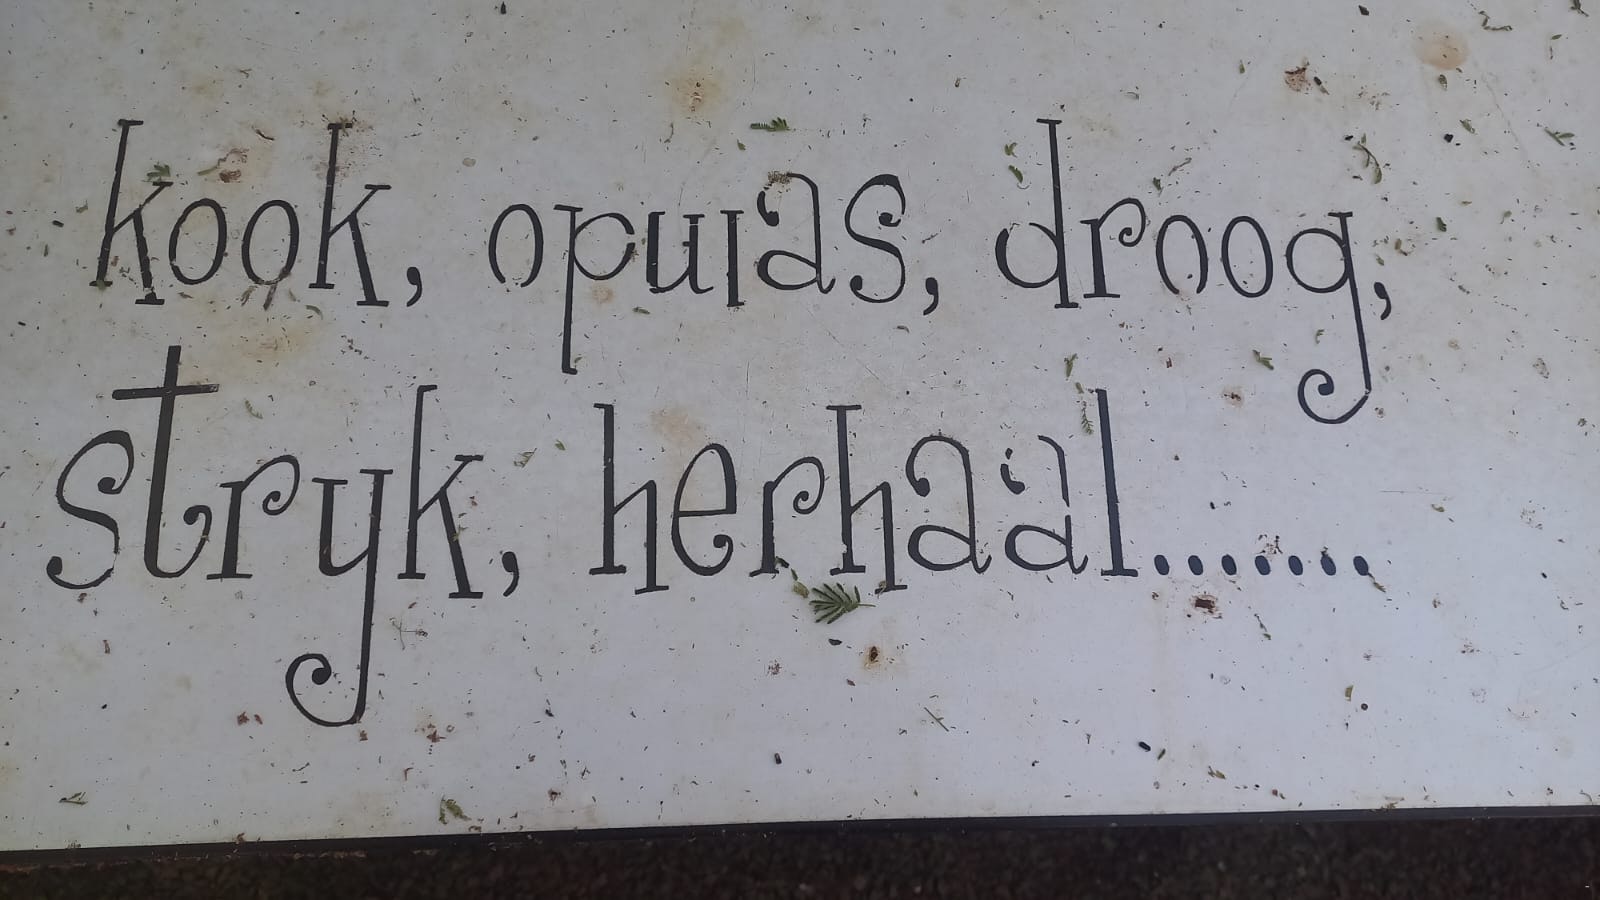 kook, opwas, droog,
stryk, herhaal.......